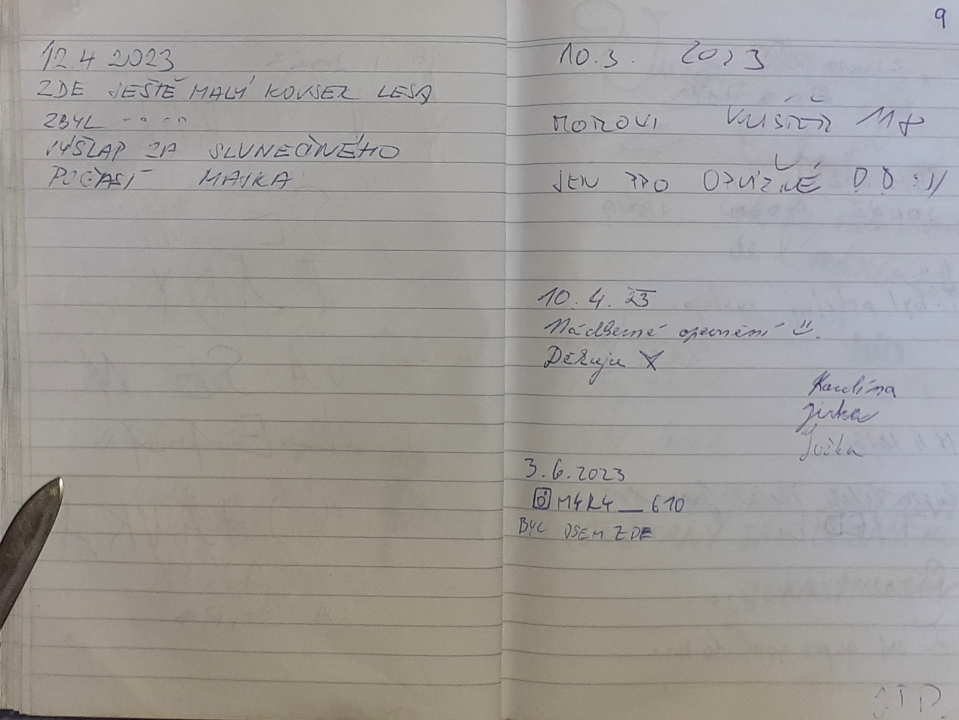 12.4 2023
ZDE JEŠTĚ MALÝ KOUSEK LESA
ZBYL ....
VÝŠLAP ZA SLUNEČNÉHO
POČASÍ MAJKA
9
10.3. 2023
118
JEN PRO
10.4. 23
Nádherné
Děkuju
Karolína
Jirka
3.6.2023
M4K4__610
BYL JSEM ZDE